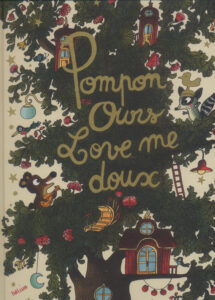 Pompon
Ours
Love me
doux